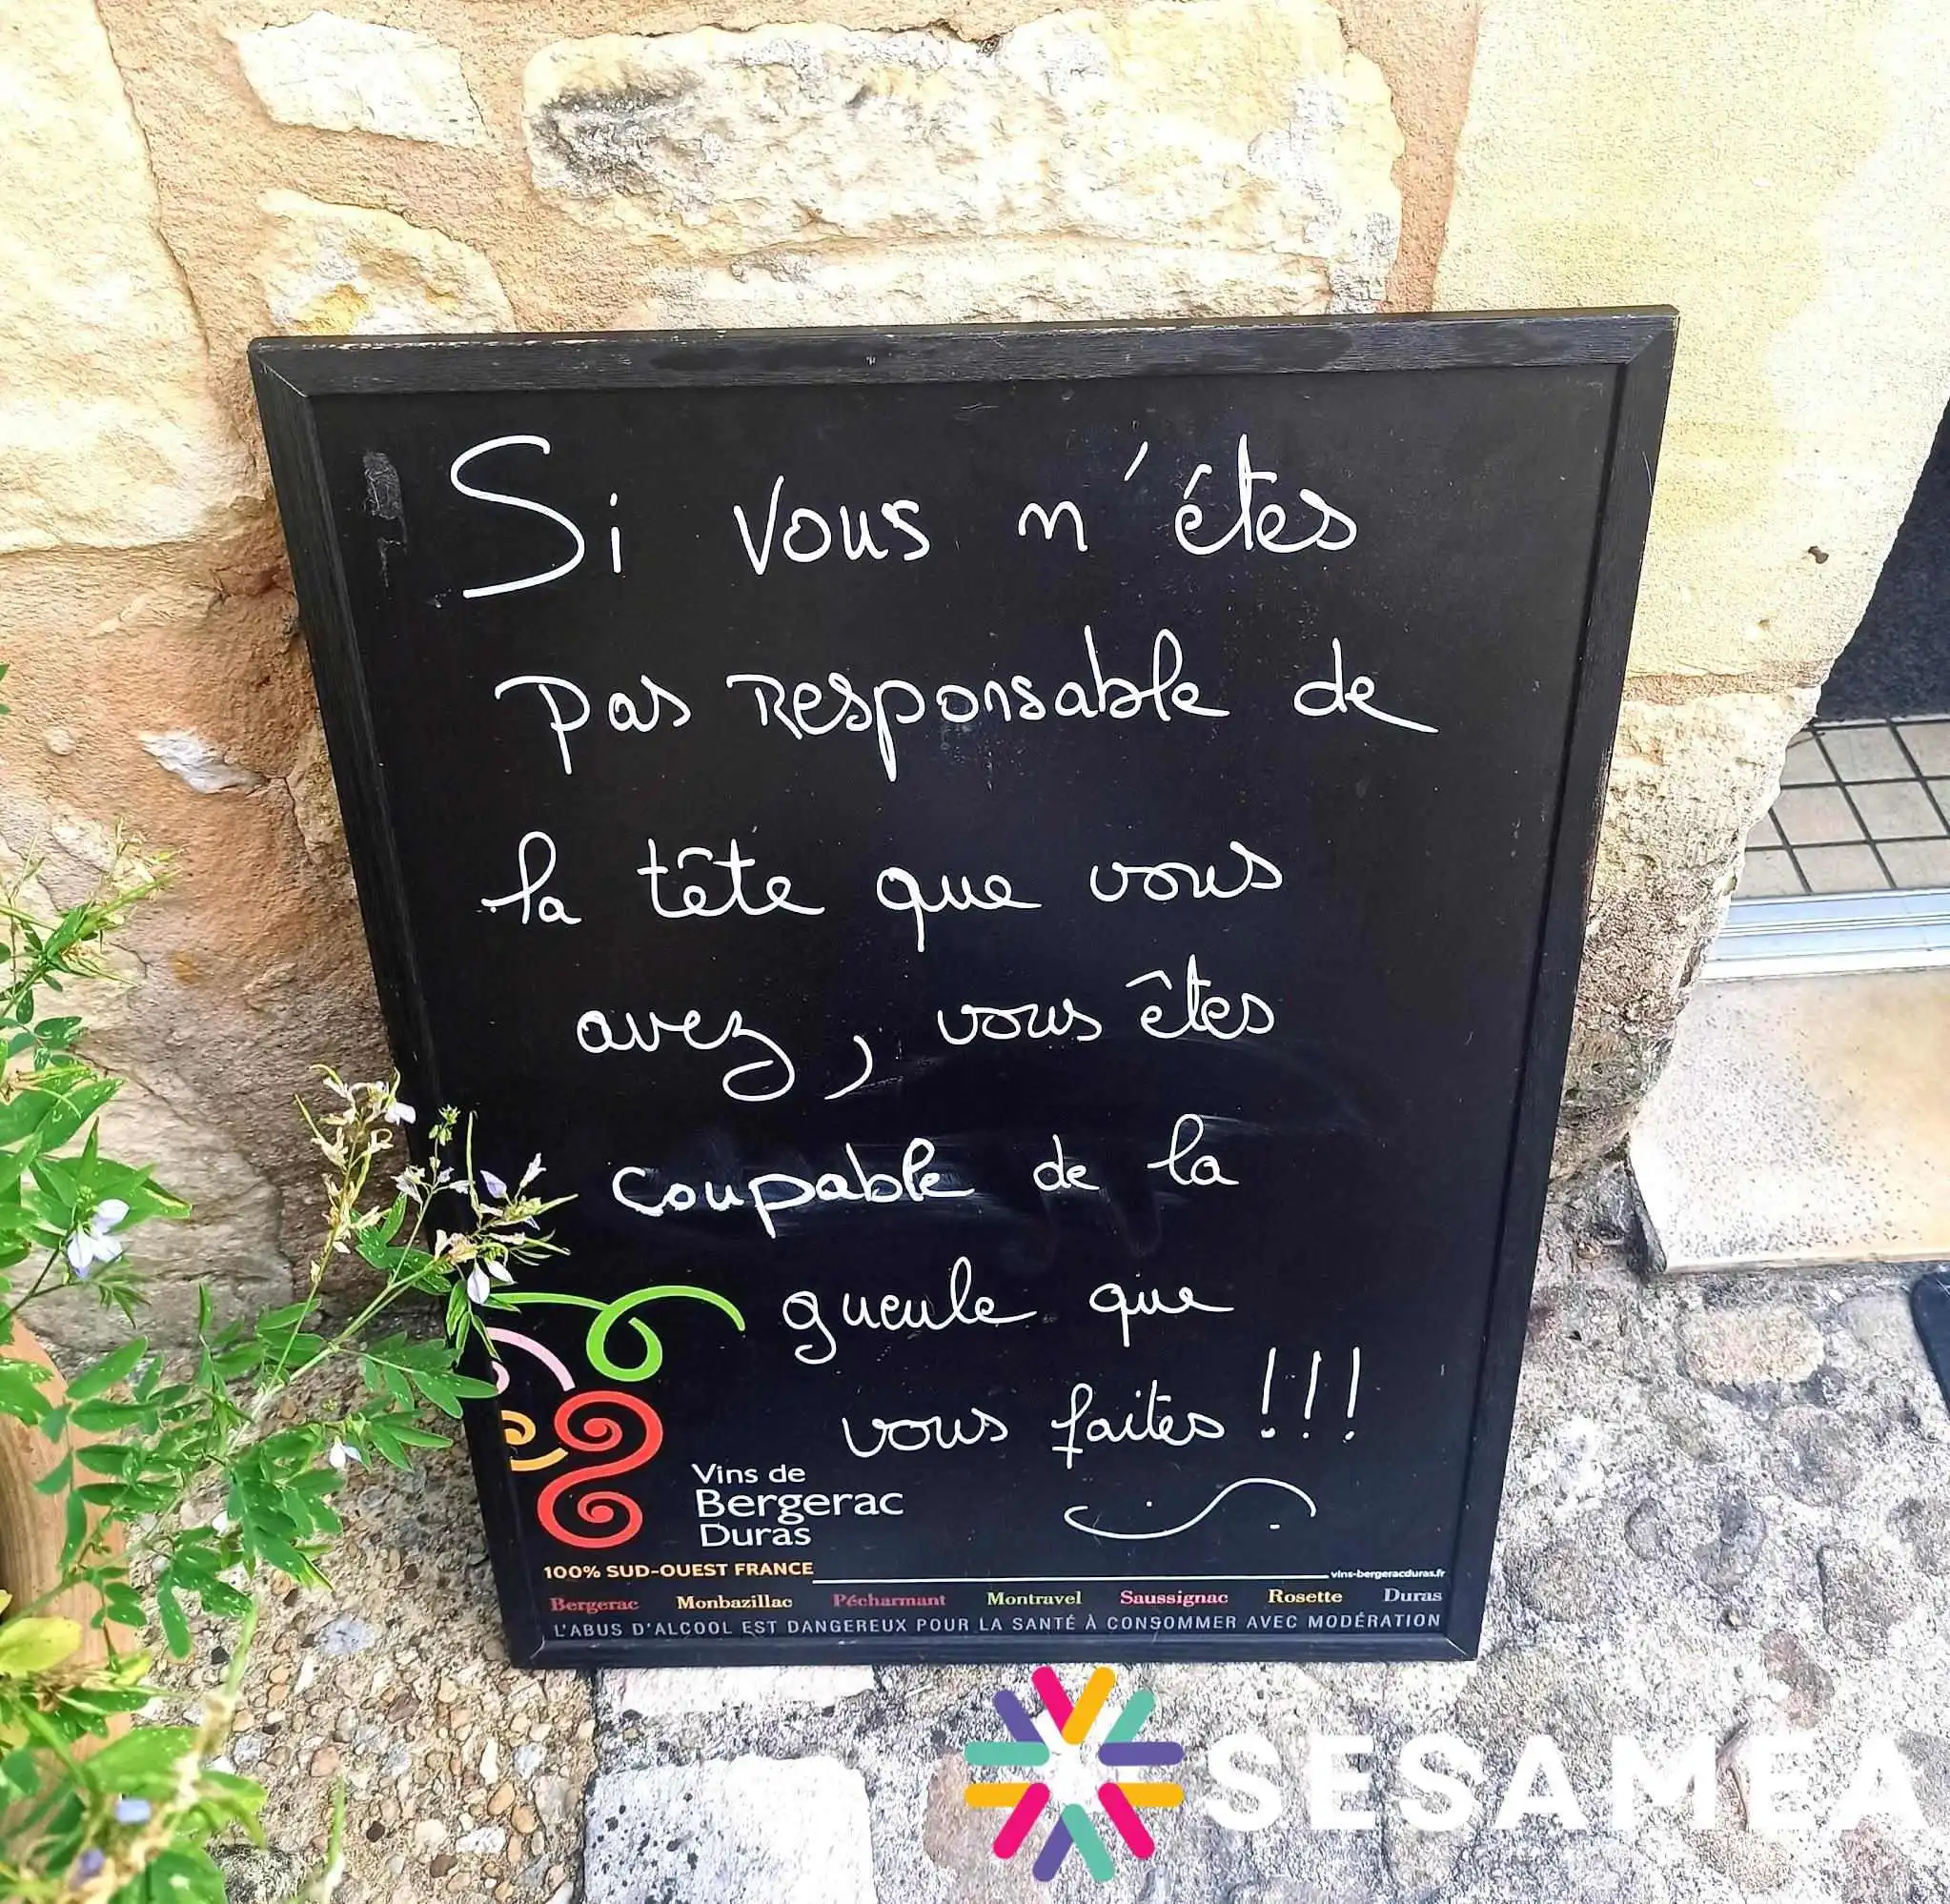 Si vous n'étes
pas responsable de
la tête que vous
avez, vous êtes
coupable de la
gueule que
vous faites !!!
Vins de
Bergerac
Duras
100% SUD-OUEST FRANCE
vins-bergeracduras.fr
Bergerac Monbazillac Pécharmant Montravel Saussignac Rosette Duras
L'ABUS D'ALCOOL EST DANGEREUX POUR LA SANTÉ À CONSOMMER AVEC MODÉRATION
SESAMEA